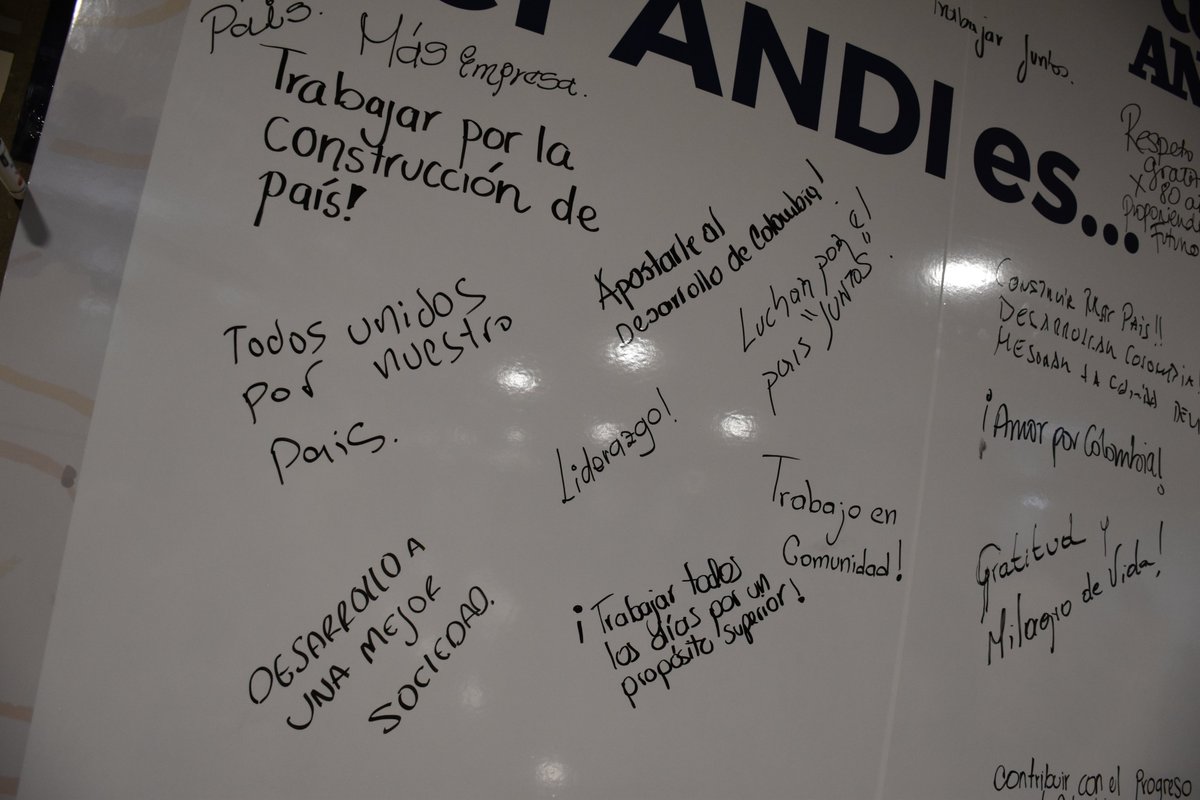 ANDI es...
País.
Más empresa.
Trabajar por la
Construcción de
país!
Todos unidos
por nuestro
país.
DESARROLLO A
UNA MEJOR
SOCIEDAD.
Apostarle al
Desarrollo de Colombia!
Luchar por el
país "JUNTOS".
Liderazgo!
Trabajo en
Comunidad!
¡Trabajar todos
los días por un
propósito superior!
Trabajar juntos.
AN
Respeto
x 80
Proponiendo
Futuro
CONSTRUIR MÁS PAÍS!!
DESARROLLAR COLOMBIA
MEJORAR LA
¡Amor por Colombia!
Gratitud y
Milagro de Vida!
Contribuir con el Progreso